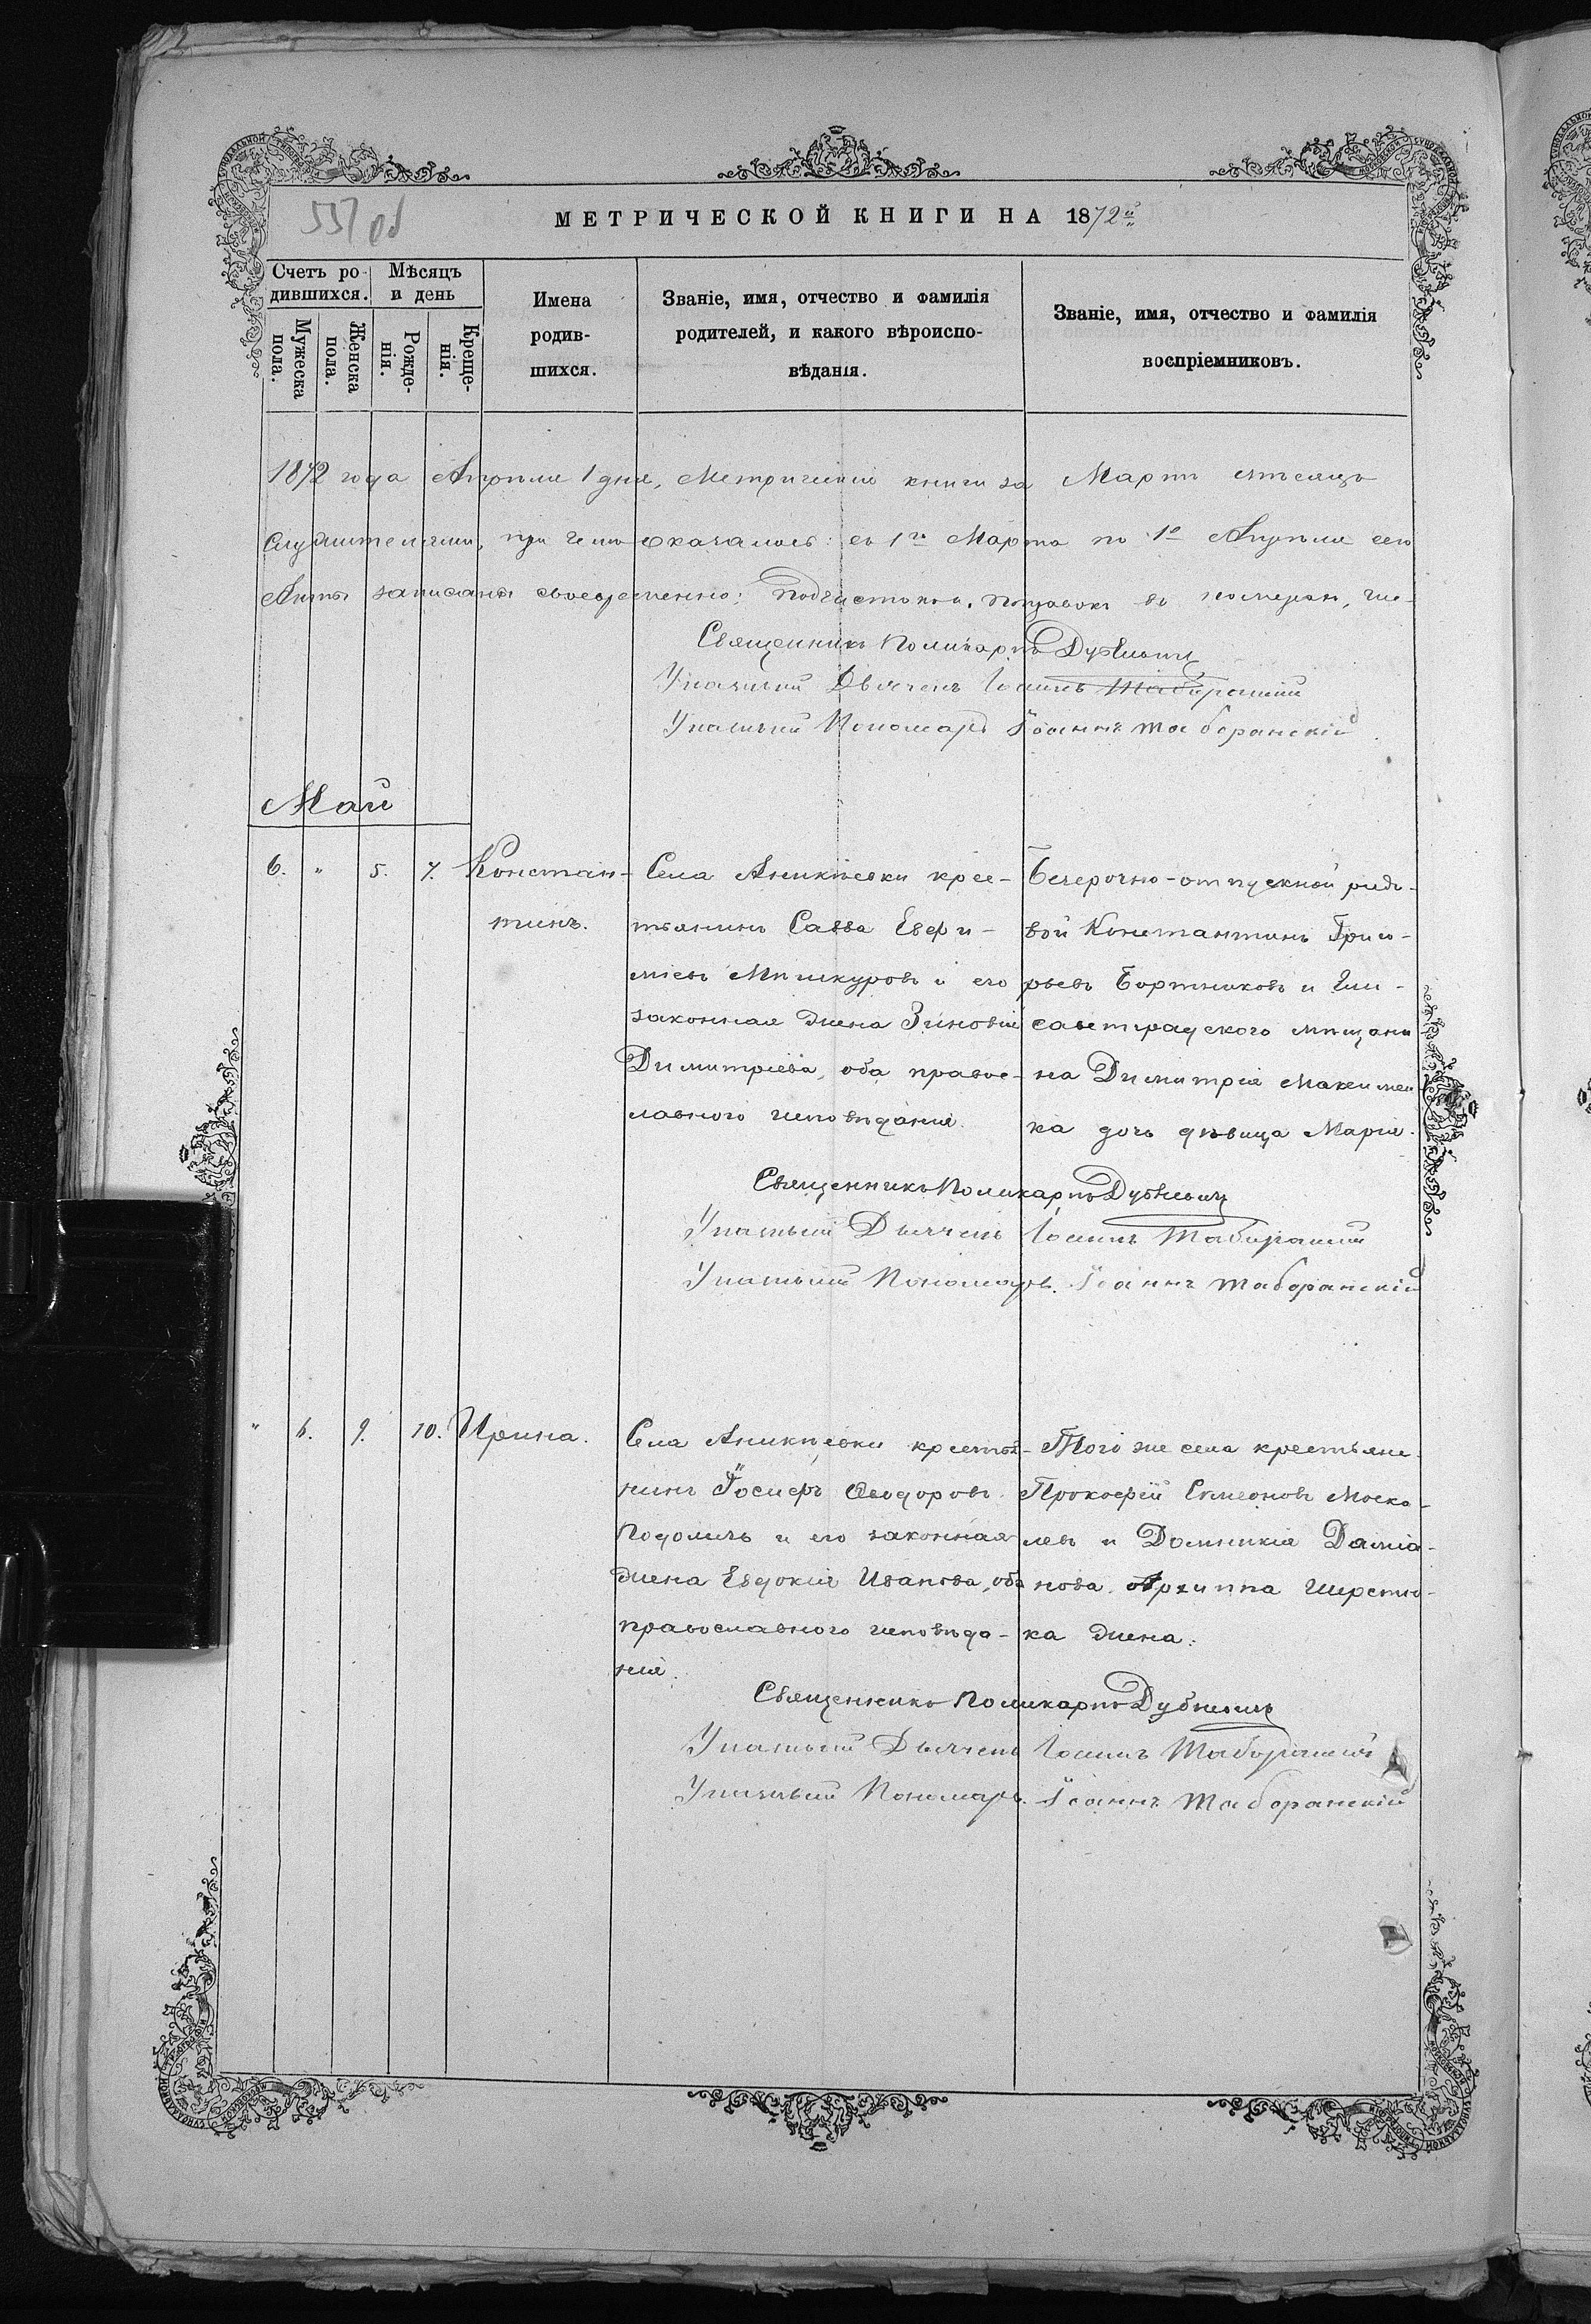 МЕТРИЧЕСКОЙ КНИГИ НА 1872й
Счетъ ро-
дившихся.
Мѣсяцъ
и день
Мужеска
пола.
Женска
пола.
Рожде-
нія.
Креще-
нія.
Имена
родив-
шихся.
Званіе, имя, отчество и фамилія
родителей, и какого вѣроиспо-
вѣданія.
Званіе, имя, отчество и фамилія
воспріемниковъ.
1872 года Апрѣля 1 дня, Метрическія книги за Мартъ мѣсяцъ
служителями, при чемъ оказалось: съ 1го Марта по 1е Апрѣля сего
Акты записаны своевременно; Подчистокъ, поправокъ въ номерахъ, чи-
Священникъ Поликарпъ Дубневичъ
Указный Дьячекъ Іоаннъ Таборанскій
Указный Пономарь Іоаннъ Таборанскій
Май
6. " 5. 7. Констан-
тинъ.
Села Аникѣевки крес-
тьянинъ Савва Евфи-
міевъ Мишкуровъ и его
законная жена Зиновія
Димитріева, оба правос-
лавного исповѣданія.
Безсрочно-отпускной рядо-
вой Константинъ Григо-
рьевъ Бортниковъ и Ели-
саветградского мѣщани
на Димитрія Максимен
ка дочь дѣвица Марія.
Священникъ Поликарпъ Дубневичъ
Указный Дьячекъ Іоаннъ Таборанскій
Указный Пономарь. Іоаннъ Таборанскій
" 6. 9. 10. Ирина.
Села Аникѣевки крестья-
нинъ Іосифъ Ѳеодоровъ
Подоличъ и его законная
жена Евдокія Иванова, оба
православного исповѣда-
нія.
Того же села крестьяне
Прокофій Симеоновъ Моска-
левъ и Домникія Даміа-
нова Архиппа Шерстю-
ка жена.
Священникъ Поликарпъ Дубневичъ
Указный Дьячекъ Іоаннъ Таборанскій
Указный Пономарь. Іоаннъ Таборанскій